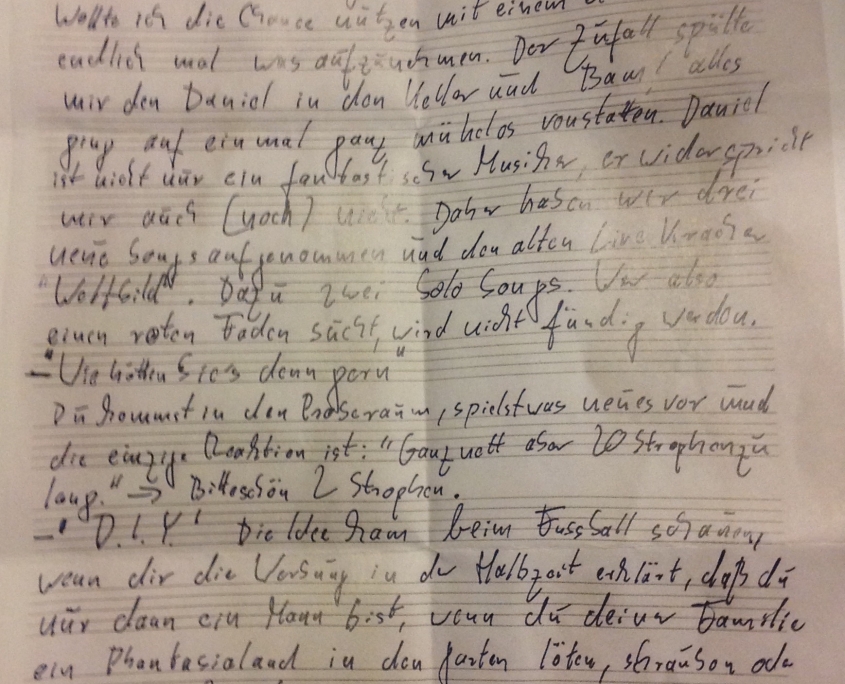 Wollte ich die Chance nützen mit einem
endlich mal was aufzunehmen. Der Zufall spülte
mir den Daniel in den Keller und Bam! alles
ging auf einmal ganz mühelos vonstatten. Daniel
ist nicht nur ein fantastischer Musiker, er widerspricht
mir auch (noch) nicht. Daher haben wir drei
neue Songs aufgenommen und den alten Live Kracher
"Weltbild". Dazu zwei Solo Songs. Wer also
einen roten Faden sucht, wird nicht fündig werden.
- "Wie hätten Sie's denn gern"
Du kommst in den Proberaum, spielst was neues vor und
die einzige Reaktion ist: "Ganz nett aber 20 Strophen zu
lang." → Bitteschön 2 Strophen.
- "D.I.Y." Die Idee kam beim Fussball schauen,
wenn dir die Werbung in der Halbzeit erklärt, daß du
nur dann ein Mann bist, wenn du deiner Familie
ein Phantasialand in den Garten löten, schrauben oder